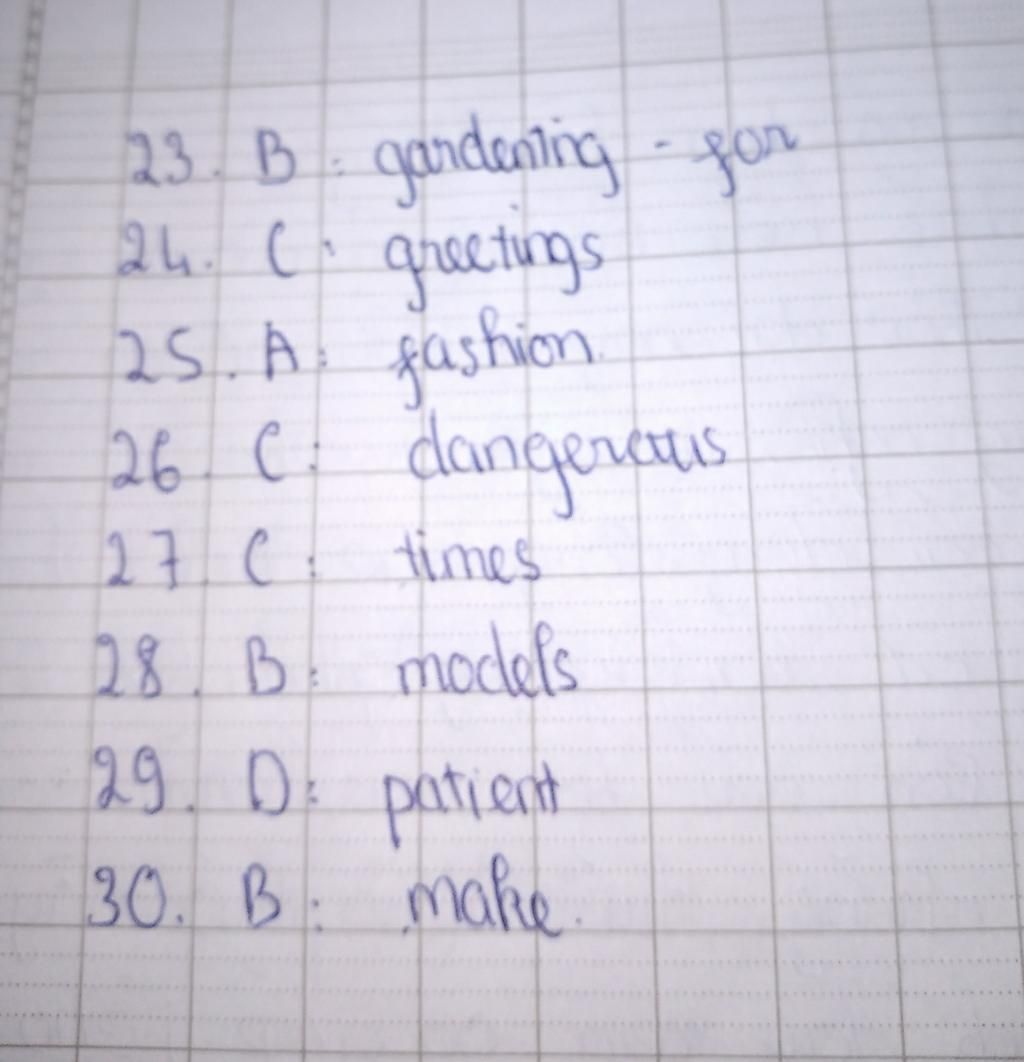 23. B: gardening - for
24. C: greetings
25. A: fashion.
26. C: dangereous
27. C: times
28. B: models
29. D: patient
30. B: make.